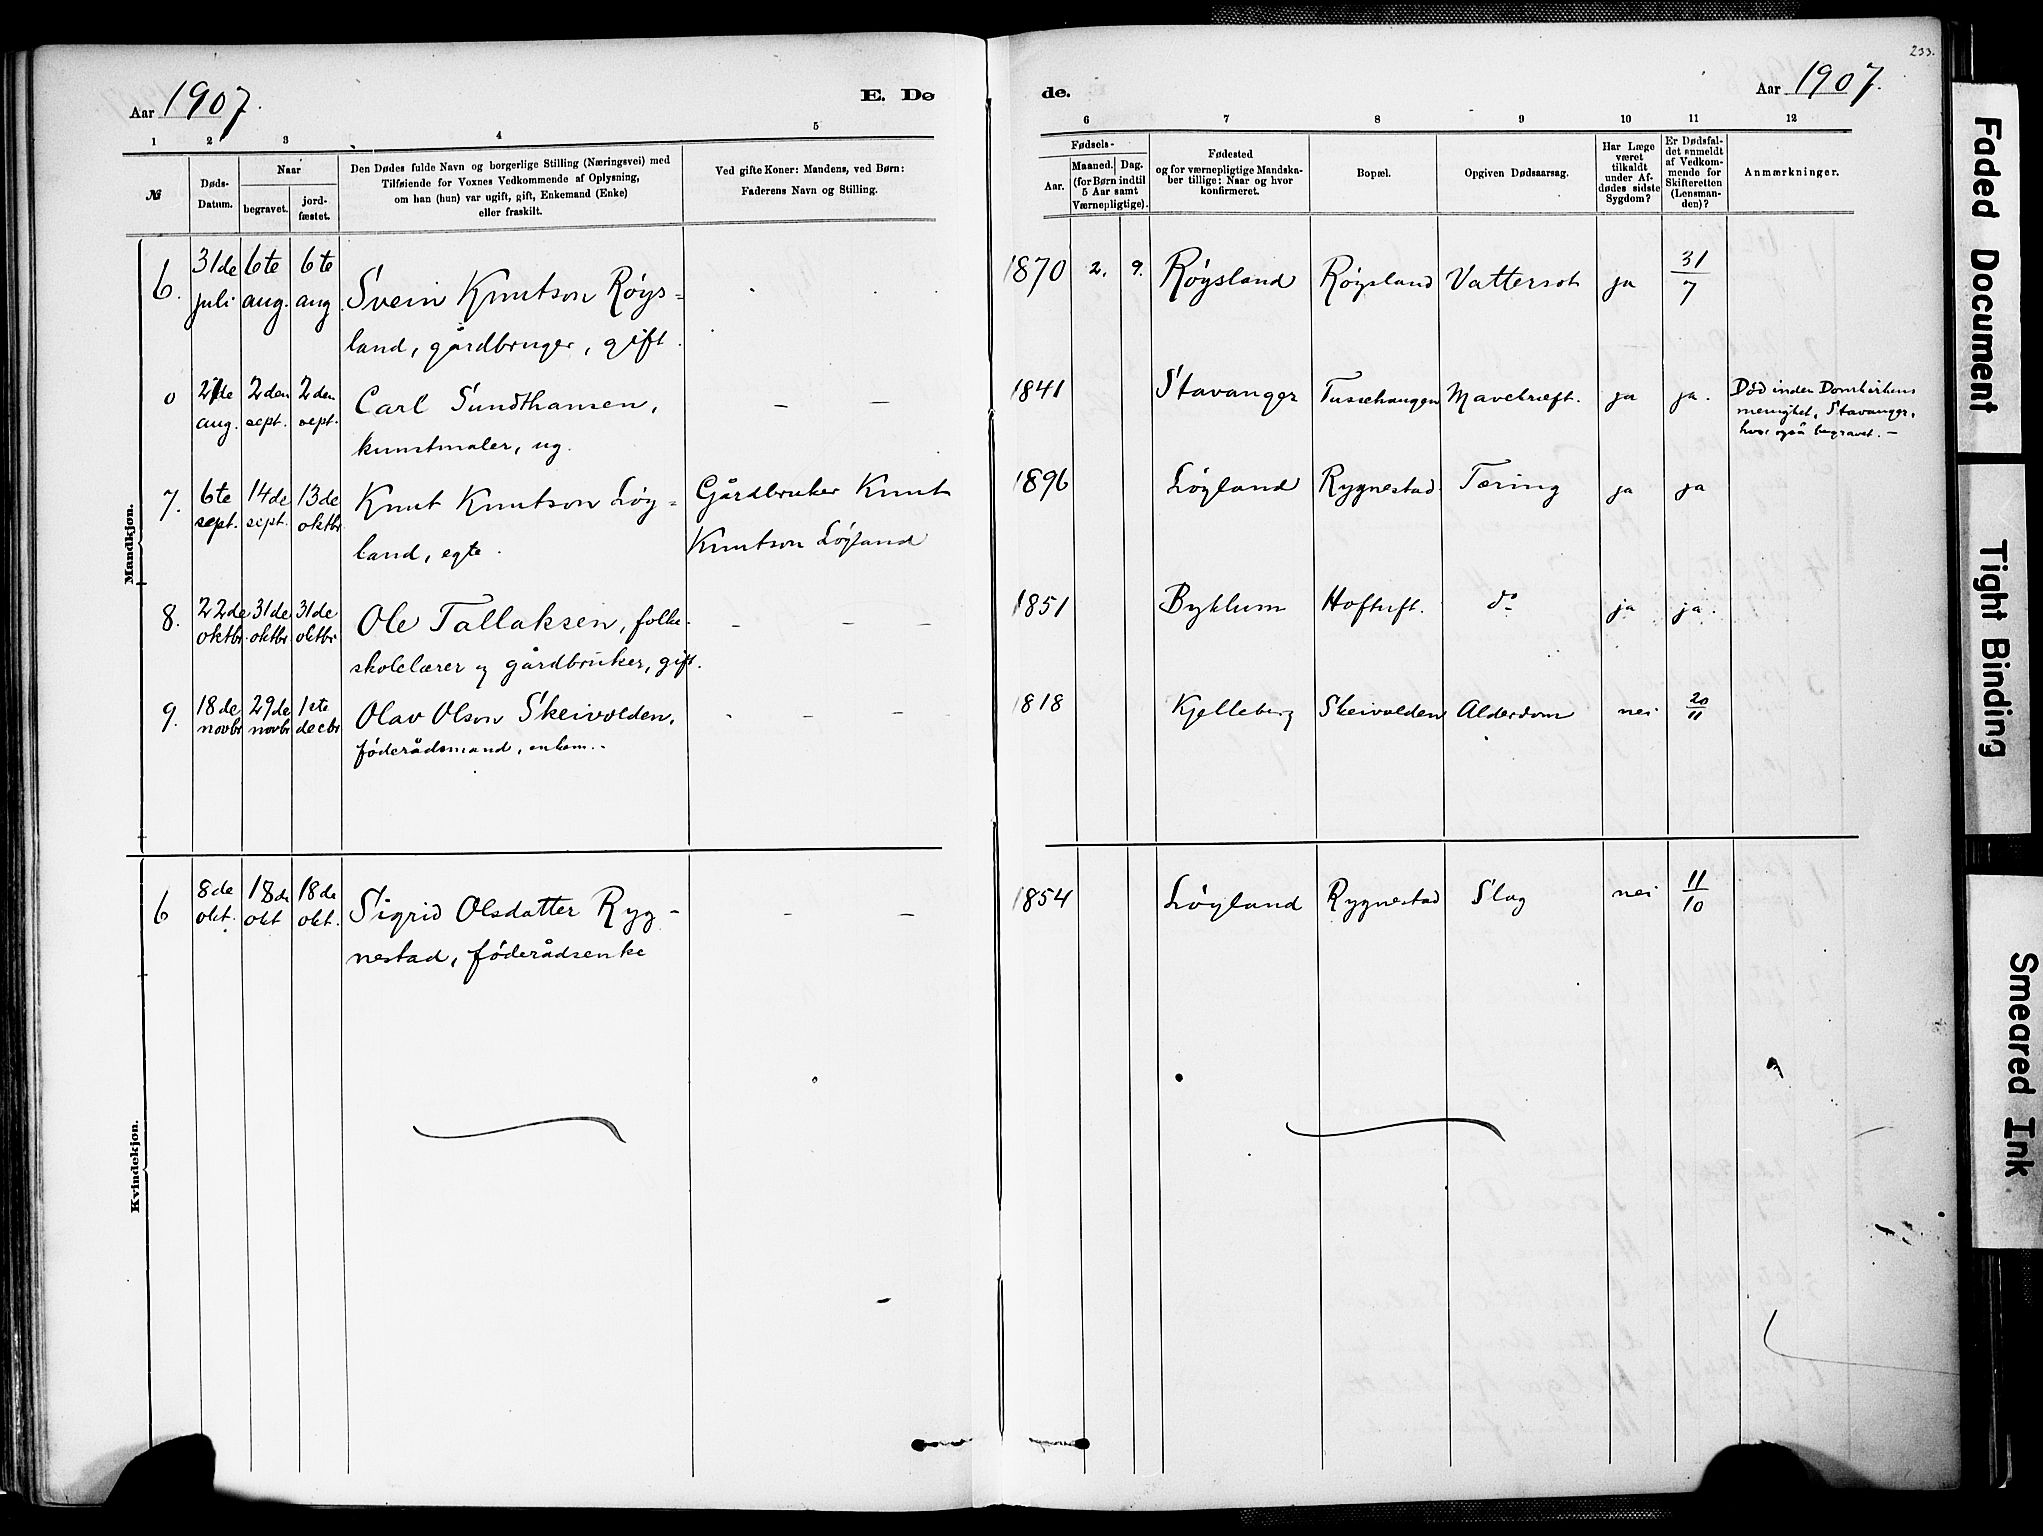 233.
Aar 1907.
E. Dø
de.
Aar 1907.
1 2 3 4 5
6 7 8 9 10 11 12
№
Døds-
Datum.
Naar
begravet.
jord-
fæstet.
Den Dødes fulde Navn og borgerlige Stilling (Næringsvei) med
Tilføiende for Voxnes Vedkommende af Oplysning,
om han (hun) var ugift, gift, Enkemand (Enke)
eller fraskilt.
Ved gifte Koner: Mandens, ved Børn:
Faderens Navn og Stilling.
Fødsels-
Aar.
Maaned.
Dag.
(for Børn indtil
5 Aar samt
Værnepligtige).
Fødested
og for værnepligtige Mandska-
ber tillige: Naar og hvor
konfirmeret.
Bopæl.
Opgiven Dødsaarsag.
Har Læge
været
tilkaldt
under Af-
dødes sidste
Sygdom?
Er Dødsfal-
det anmeldt
af Vedkom-
mende for
Skifteretten
(Lensman-
den)?
Anmærkninger.
Mandkjøn.
6.
31de
juli
6te
aug.
6te
aug.
Svein Knutson Røys-
land, gårdbruger, gift.
1870 2. 9. Røysland Røysland Vattersot ja 31/7
0
aug.
2den
sept.
2den
sept.
Carl Sundthansen,
kunstmaler, ug.
– –
1841 Stavanger Tussehaugen Mavekræft. ja ja.
Død inden Domkirkens
menighet, Stavanger,
hvor også begravet. –
7.
6te
sept.
14de
sept.
13de
oktbr
Knut Knutson Løy-
land, egte.
Gårdbruker Knut
Knutson Løyland
1896 Løyland Rygnestad Tæring ja ja
8.
22de
oktbr.
31de
oktbr
31de
oktbr
Ole Tallaksen, folke-
skolelærer og gårdbruker, gift.
– – –
1851 Byklum Hoftuft. do ja ja.
9.
18de
novbr
29de
novbr
1ste
decbr
Olav Olson Skeivolden,
føderådsmand, enkem. -
- – –
1818 Kjelleberg Skeivolden Alderdom nei 20/11
Kvindekjøn.
6
8de
okt.
18de
okt
18de
okt.
Sigrid Olsdatter Ryg-
nestad, føderådsenke
– –
1854 Løyland Rygnestad Slag nei 11/10
Faded Document
Tight Binding
Smeared Ink